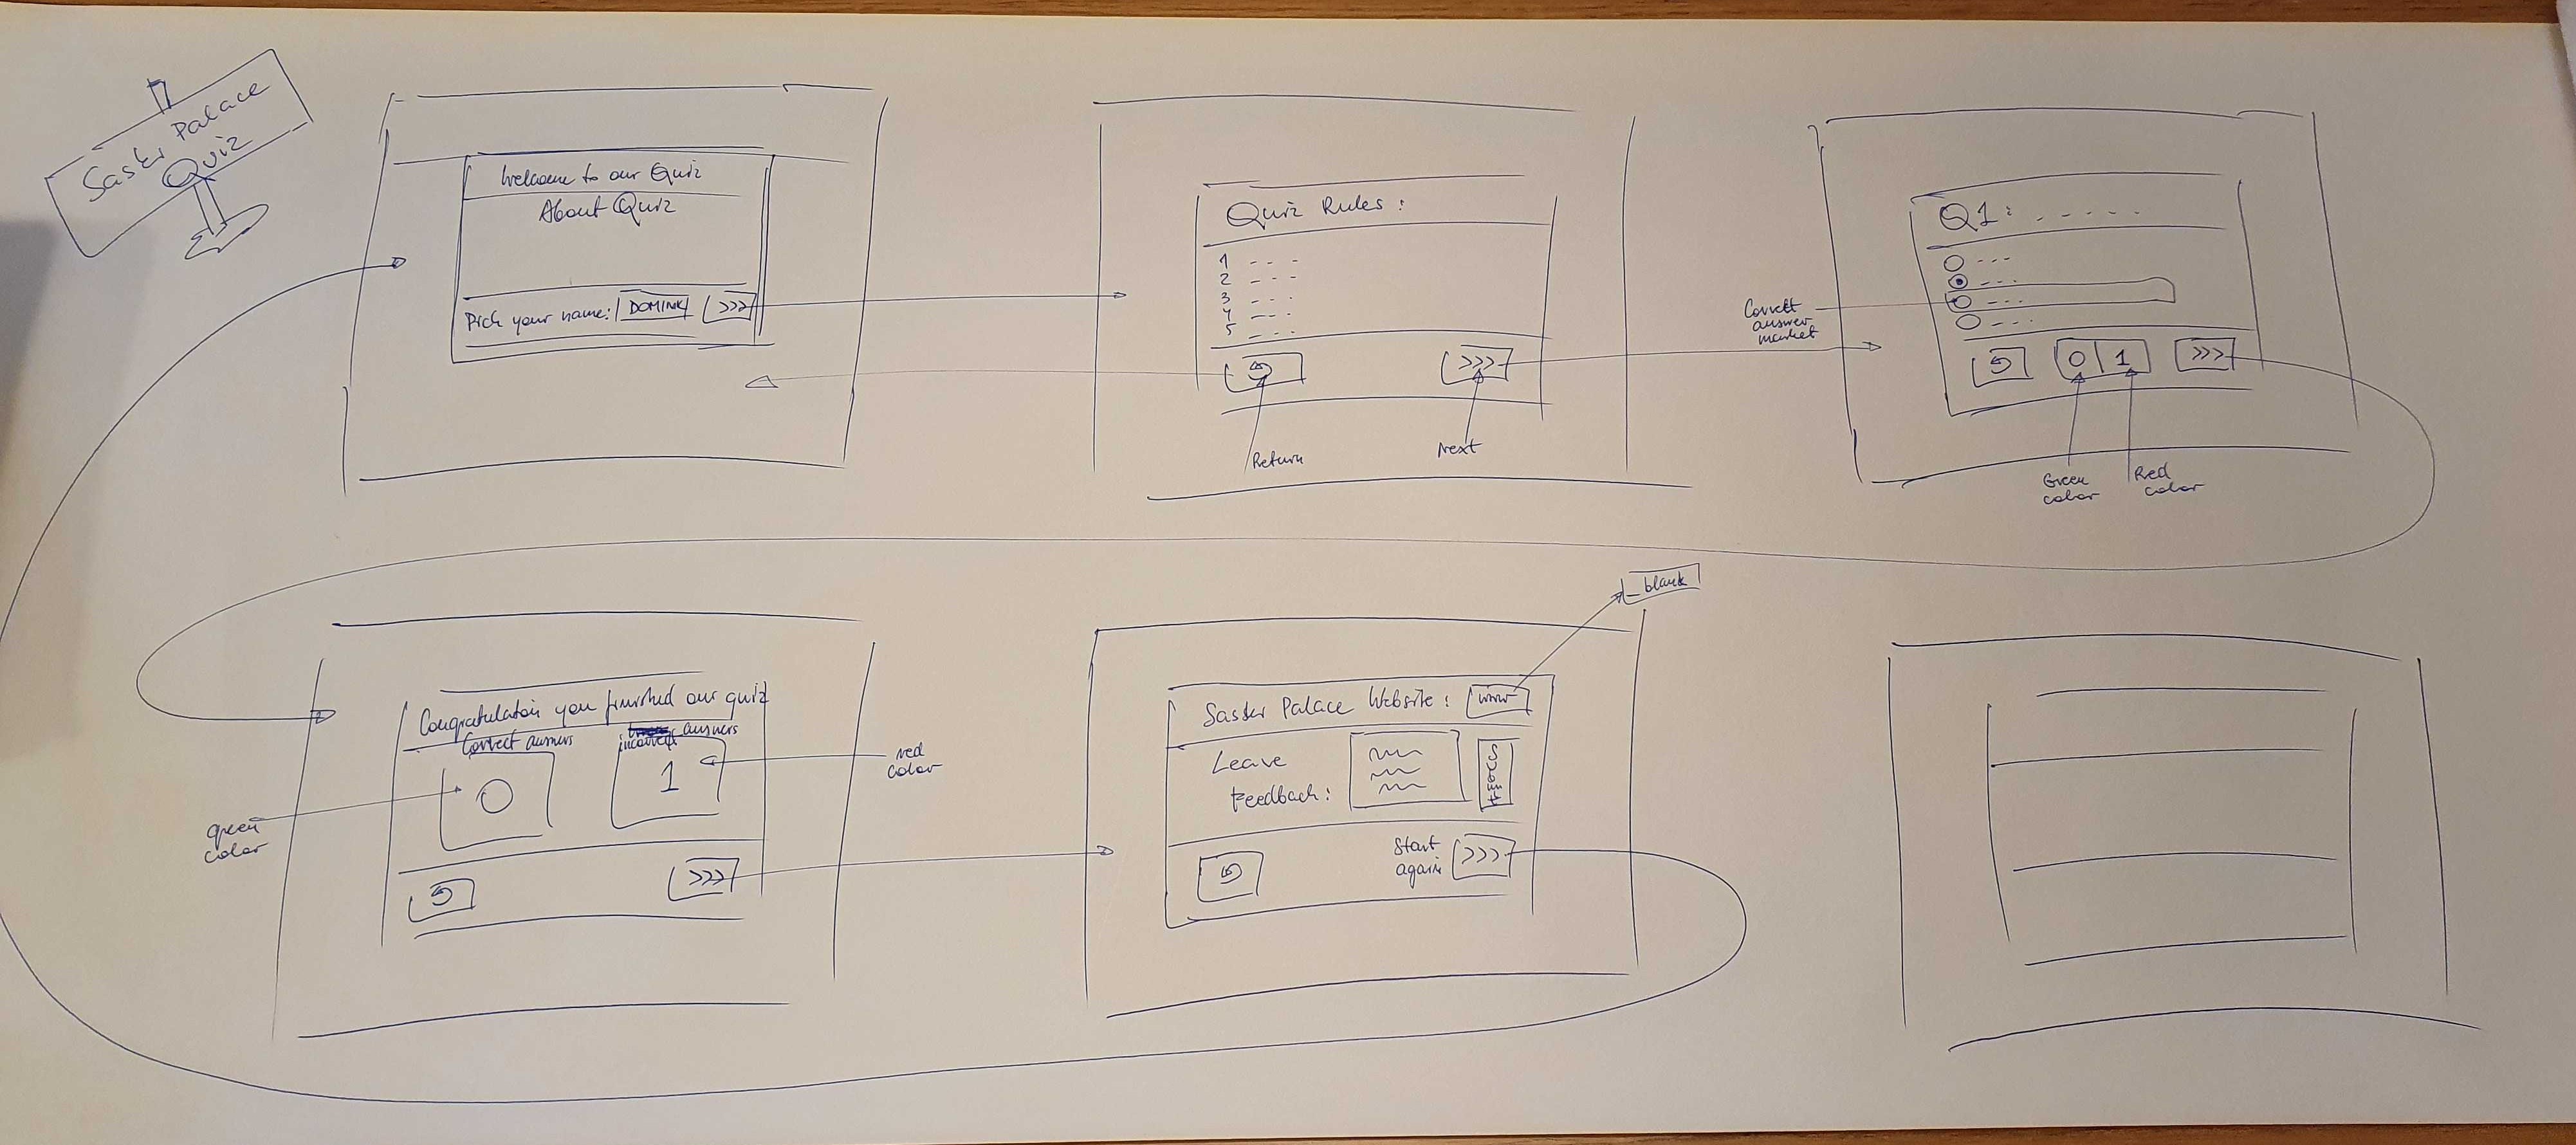 Sasker Palace
Quiz
Welcome to our Quiz
About Quiz
Pick your name: DOMINIK >>>
Quiz Rules:
1 - - -
2 - - -
3 - - -
4 - - -
5 - - -
>>>
Return
Next
Q1: - - - - -
- - -
- - -
- - -
- - -
Correct
answer
market
0 1 >>>
Green
color
Red
color
Congratulation you finished our quiz
Correct answers
incorrect answers
0
1
green
color
red
color
>>>
_blank
Sasker Palace Website: www
Leave
Feedback:
Start
again >>>